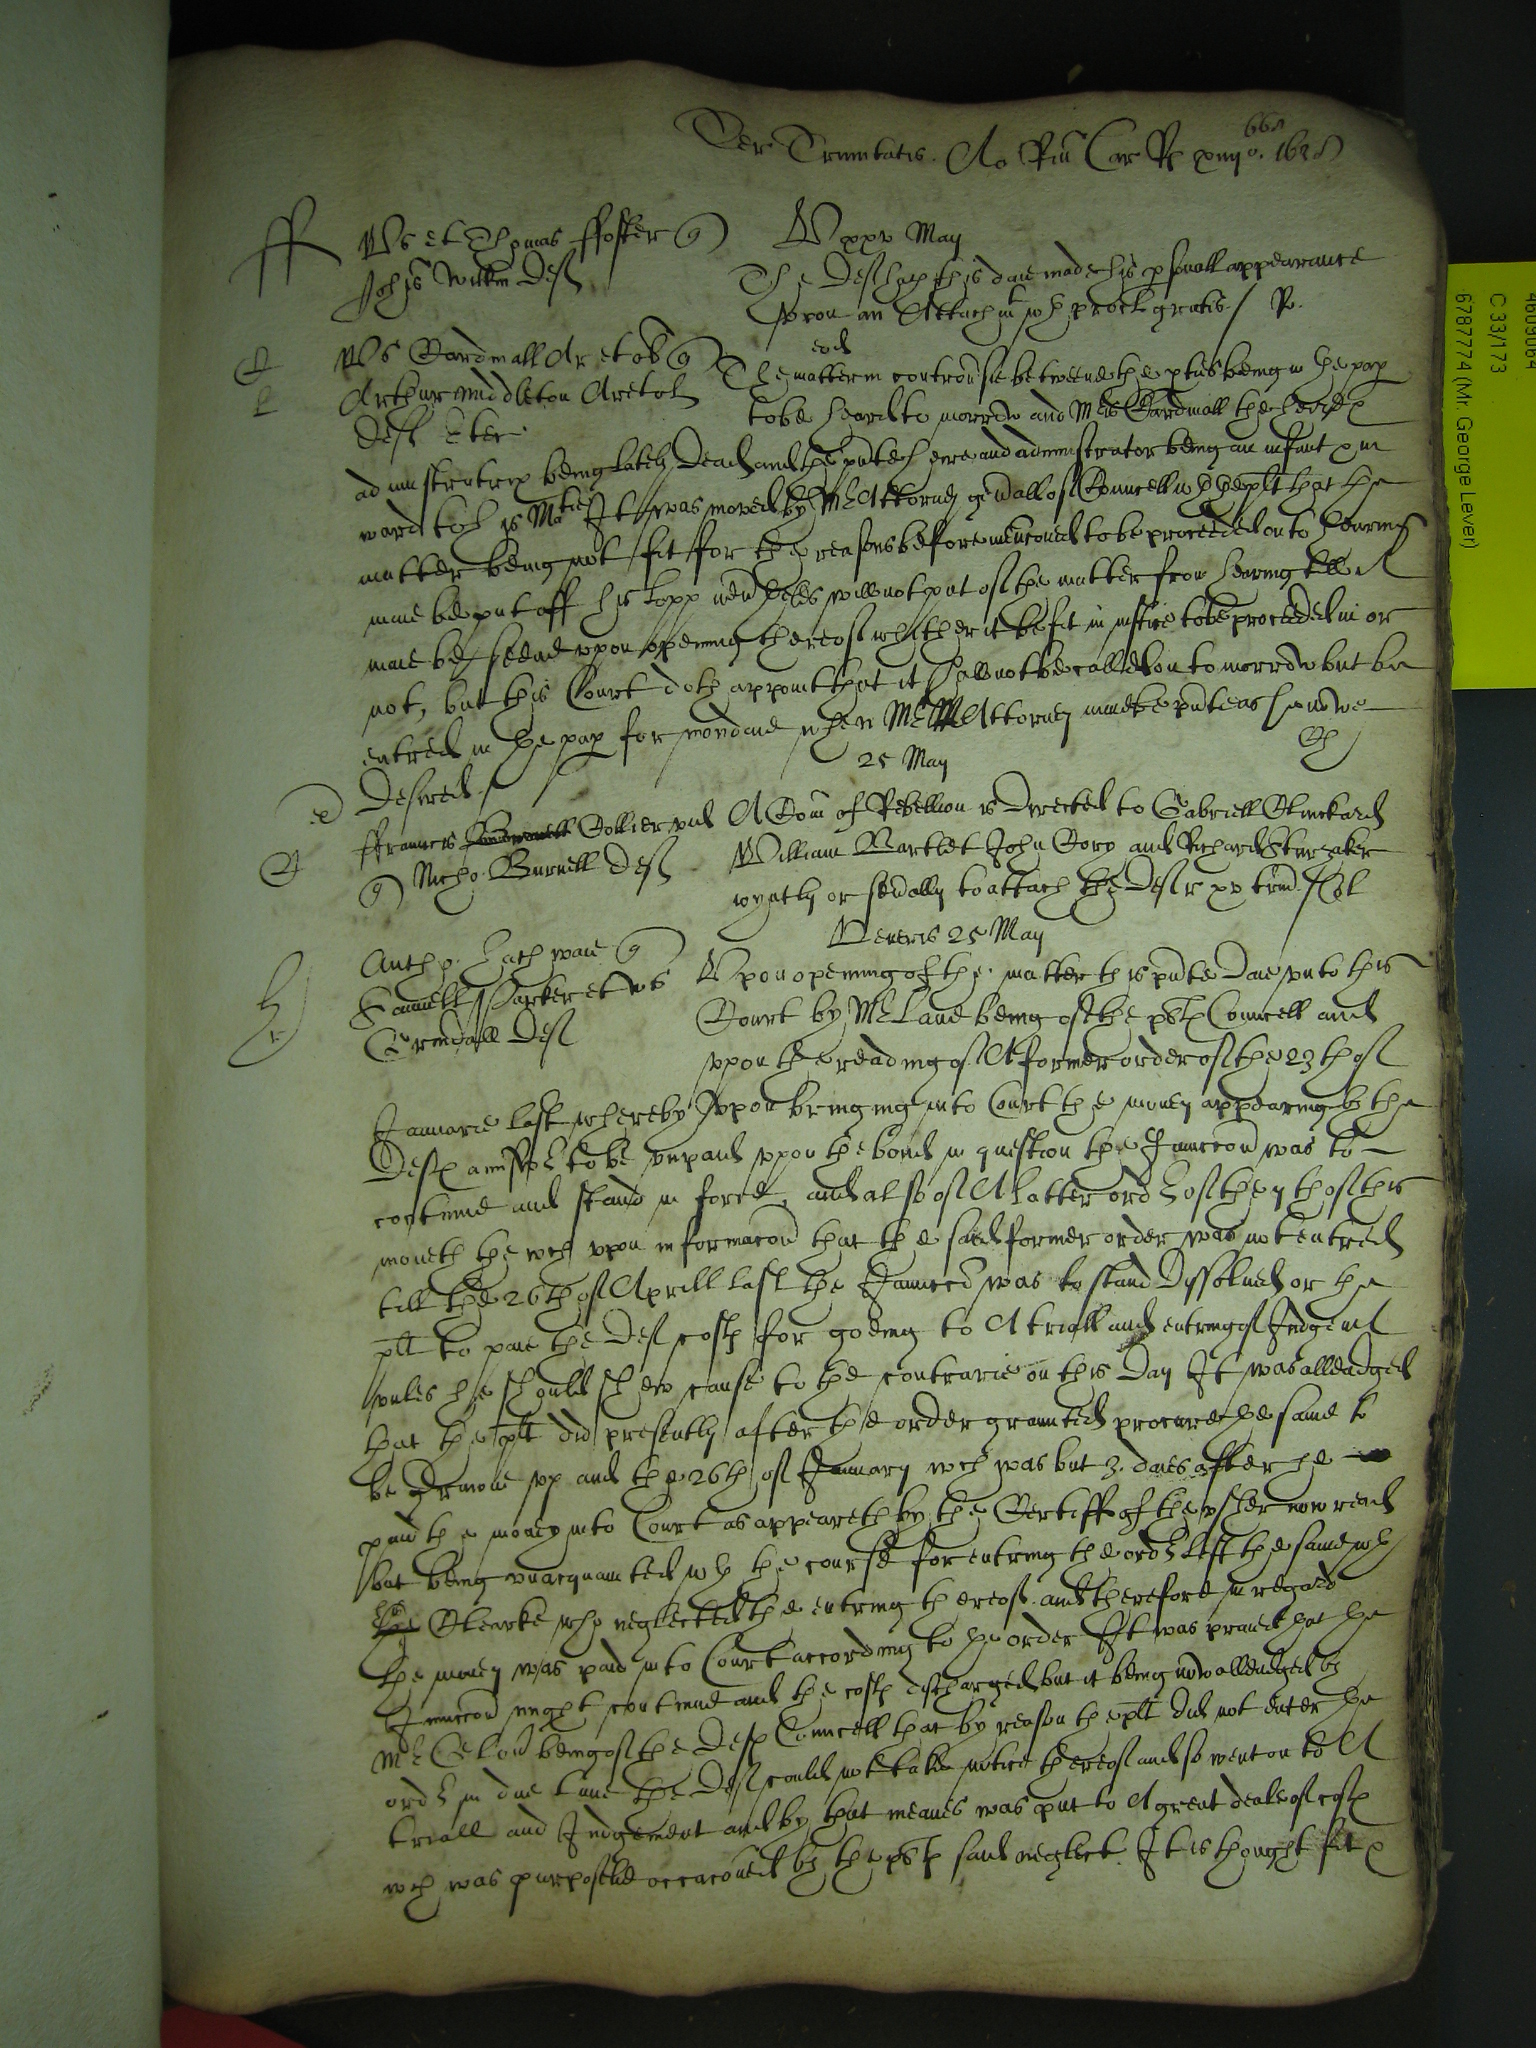 Ter Trinitatis. Ao Rni Car R xiiijo. 1638
ff
Vs et Thomas ffoster q
Johis Willm Def
V xxv May
The Def hath this daie made his psonall appearance
vpon an Attachmt wth procl gratis / R.
C
Vs Cardinall Ar et ob q
Arthur Middleton Ar et
Def
eod
The matter in controusie betweene the pties being in the pap
to be heard to morrow and Mris Cardinall the
administratrix being lately Dead and the pnte heire and administrator being an infant in
ward to his Matie It was moved by Mr Attorney genall of Councell wth the plt that the
matter being not fit for the reasons before menconed to be proceeded on to hearing
maie be put off his Lopp will not put of the matter from hearing till it
maie be seene vpon opening thereof whither it be fit in justice to be proceeded in or
not, but this Court doth appoint that it shall not be called on to morrow but be
entred in the pap for mondaie when Mr Attorney maie be pnte as he
Desired /
25 May
C
ffrancis Collier
q Nicho. Burnell Def
A Com of Rebellion is Directed to Gabriell Clinckard
William Bartlet John Cory and Richard
ioyntly or seually to attach the Def r xv trin
h
Anth hathwaie q
Samuell Parker et
Crendall Def
Veneris 25 May
Vpon opening of the matter this pnte Daie vnto this
Court by Mr Lane being of the plts Councell and
vpon the reading of A former order of the 23th of
Januarie last whereby vpon bringing into Court the money appearing by the
Defts answer to be vnpaid vpon the bond in question the Juncion was to
contynue and stand in force, and also of A latter order of the 7th of this
moneth the wch vpon informacon that the said former order was not entred
till the 26th of Aprill last the Juncion was to stand Dissolued or the
plt to paie the Def costs for goeing to A triall and entring of Judgemt
vnles he should shew cause to the contrarie on this Day It was alleadged
that the plt did presently after the order graunted procure the same to
be drawne vp and the 26th of January wch was but 3. daies after he
paid the money into Court as appeareth by the Certiff of the vsher now read
but being vnacquainted wth the course for entring the order left the same wth
his Clearke who neglected the entring thereof and therefore in regard
the money was paid into Court according to the order It was praied that the
Juncion might contynue and the costs discharged but it being now alleadged by
Mr being of the Defts Councell that by reason the plt did not enter the
order in due tyme the Def could not take notice thereof and so went on to A
triall and Judgement and by that meanes was put to A great deale of costs
wch was purposelie occaconed by the plts said neglect. It is thought fit
C 33/173
6787774 (Mr. George Lever)